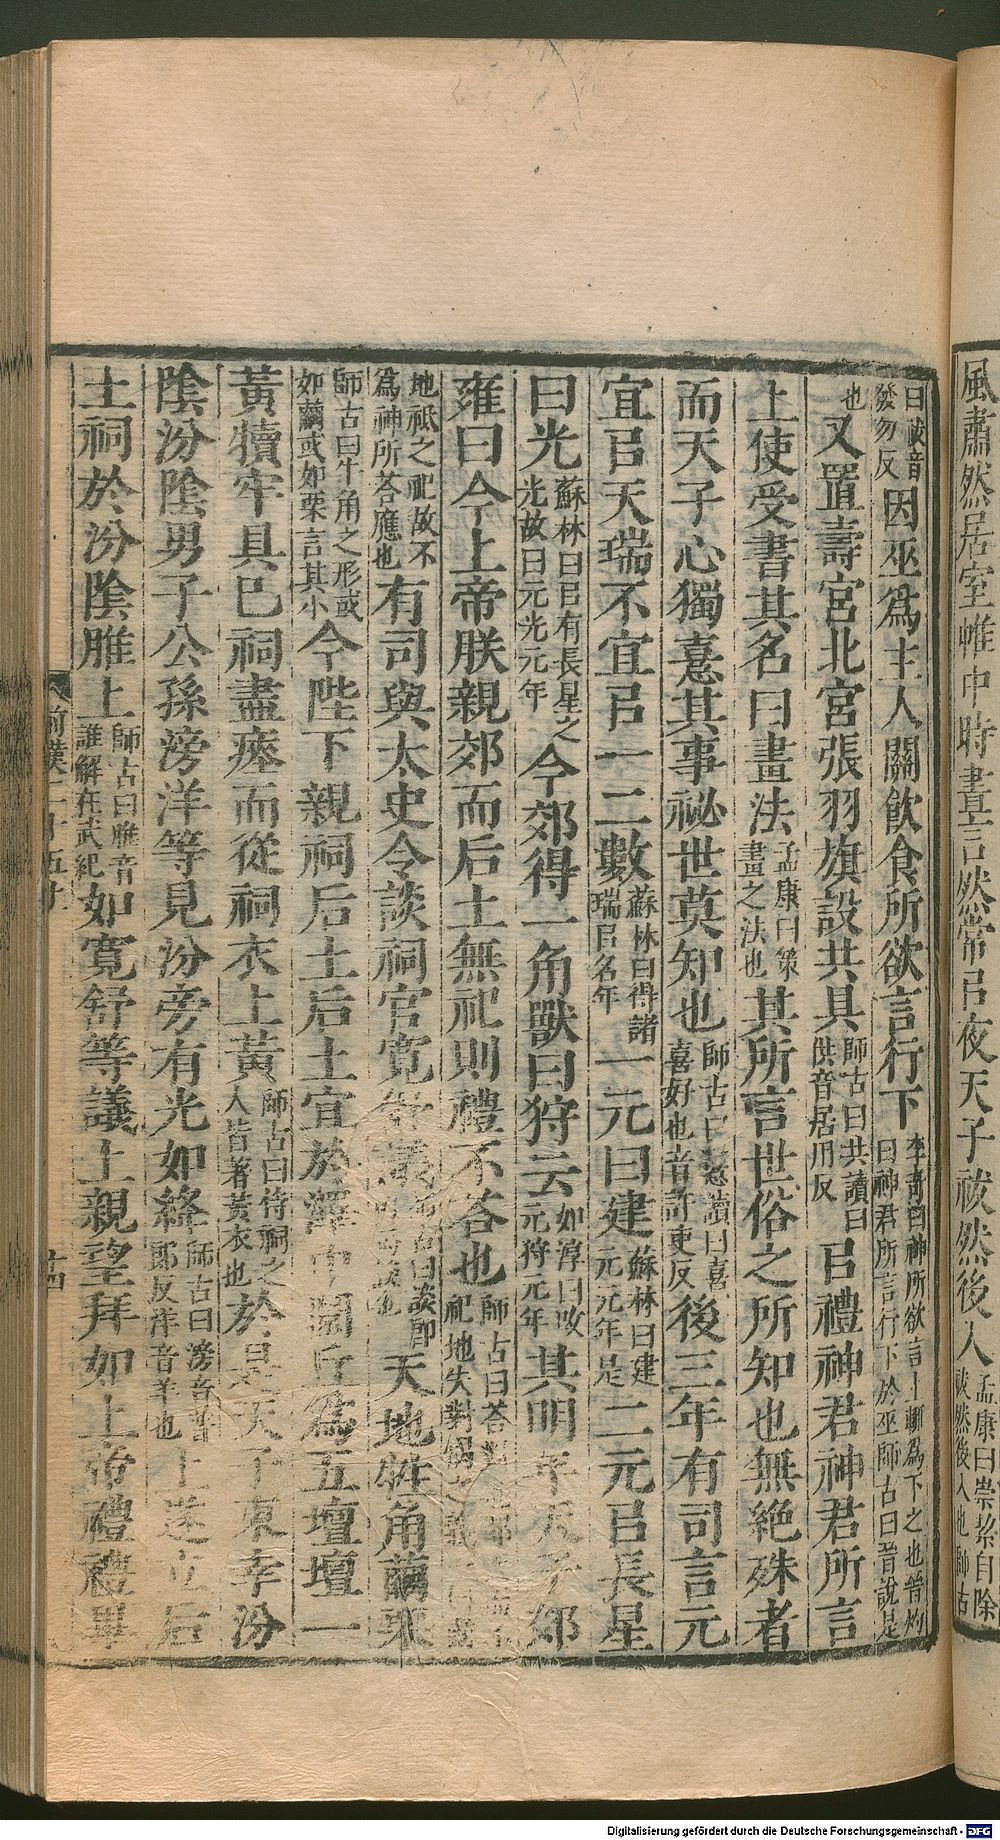 風肅然居室帷中時晝言然常㠯夜天子祓然後入孟康曰崇絜自除祓然後入也師古
曰祓音發勿反因巫爲主人關飮食所欲言行下李奇曰神所欲言上輒爲下之也晉灼曰神君所言行下於巫師古曰晉說是
也又置壽宮北宮張羽旗設共具師古曰共讀曰供音居用反㠯禮神君神君所言
上使受書其名曰畫法孟康曰策畫之法也其所言世俗之所知也無絕殊者
而天子心獨憙其事祕世莫知也師古曰憙讀曰喜喜好也音許吏反後三年有司言元
宜㠯天瑞不宜㠯一二數蘇林曰得諸瑞㠯名年一元曰建蘇林曰建元元年是二元㠯長星
曰光蘇林曰㠯有長星之光故曰元光元年今郊得一角獸曰狩云如淳曰改元狩元年其明年天子郊
雍曰今上帝朕親郊而后土無祀則禮不答也師古曰答對也祀地失對偶之
地祇之祀故不爲神所荅應也有司與太史令談祠官寬舒議師古曰談卽天地牲角繭栗
師古曰牛角之形或如繭或如栗言其小今陛下親祠后土后土宜於澤中圜丘爲五壇壇一
黃犢牢具已祠盡瘞而從祠衣上黃師古曰侍祠之人皆著黃衣也於是天子東幸汾
陰汾陰男子公孫滂洋等見汾旁有光如絳師古曰滂音普郎反洋音羊也上遂立后
土祠於汾陰脽上師古曰脽音誰解在武紀如寬舒等議上親望拜如上帝禮禮畢
前漢二十五
十四
Digitalisierung gefördert durch die Deutsche Forschungsgemeinschaft - DFG